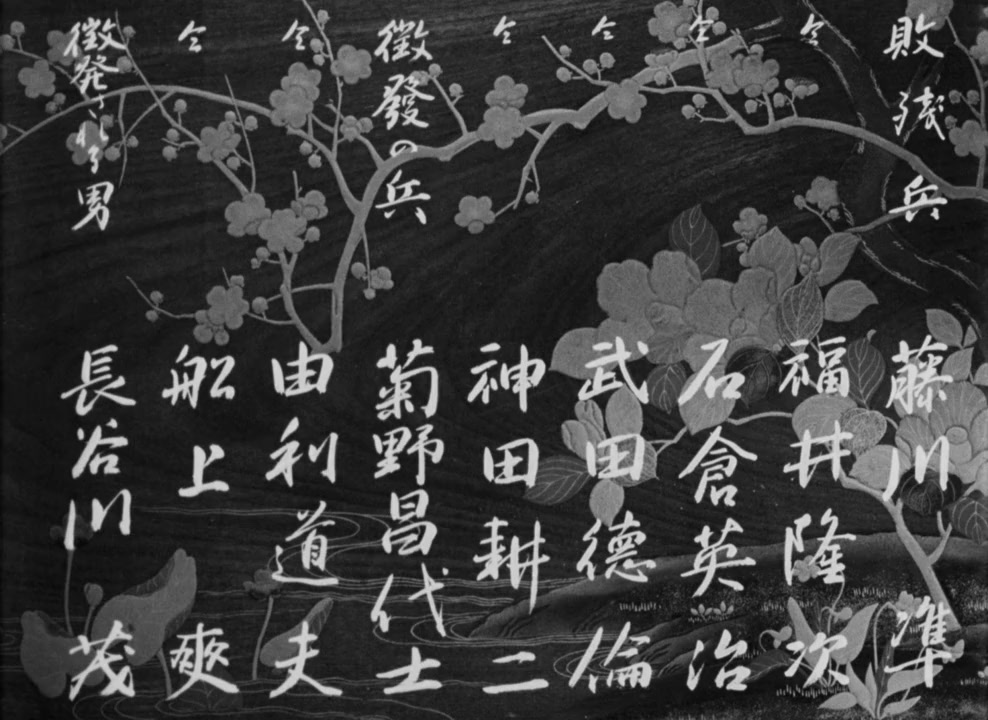 敗残兵 藤川準
仝 福井隆次
仝 石倉英治
仝 武田德倫
仝 神田耕二
徴發の兵 菊野昌代士
仝 由利道夫
仝 船上爽
徴発される男 長谷川茂